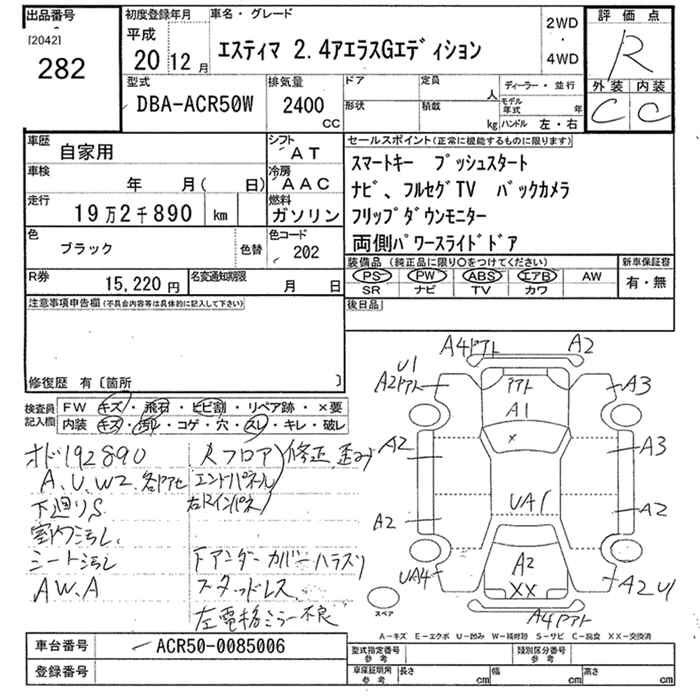 出品番号
[2042]
282
初度登録年月
平成
20 12 月
車名・グレード
エスティマ 2.4アエラスGエディション
2WD
・
4WD
評価点
R
外装 内装
C C
型式
DBA-ACR50W
排気量
2400
CC
ドア
形状
定員
人
積載
kg
ディーラー・並行
モデル年式 年
ハンドル 左・右
車歴
自家用
シフト
AT
車検
年 月( 日)
冷房
AAC
走行
19万2千890 km
燃料
ガソリン
色
ブラック
色替
色コード
202
R券
15,220円
名変通知期限
月 日
セールスポイント(正常に機能するものに限ります)
スマートキー プッシュスタート
ナビ、フルセグTV バックカメラ
フリップダウンモニター
両側パワースライドドア
装備品(純正品に限り○をつけてください)
新車保証書
PS PW ABS エアB AW
SR ナビ TV カワ
有・無
後日品
注意事項申告欄(不具合内容等は具体的に記入して下さい)
修復歴 有〔箇所 〕
検査員
記入欄
FW キズ・飛石・ヒビ割・リペア跡・×要
内装 キズ・汚れ・コゲ・穴・スレ・キレ・破レ
オド192890
A、U、W2、各ドアセ
下廻りS
室内汚レ、
シート汚レ
AW、A
フロア
エンドパネル
右Rインパネ
修正 歪み
Fアンダーカバーハズレ
スタッドレス
左電格ミラー不良
A4アト A2
U1
A2アト
アト
A1
×
A3
A2
A3
UA1
A2
A2
UA4
A2
XX
A2 U1
A4アト
スペア
A-キズ E-エクボ U-凹み W-補修跡 S-サビ C-腐食 XX-交換済
車台番号
ACR50-0085006
登録番号
型式指定番号
参考
類別区分番号
参考
車庫証明用
参考
長さ cm
幅 cm
高さ cm